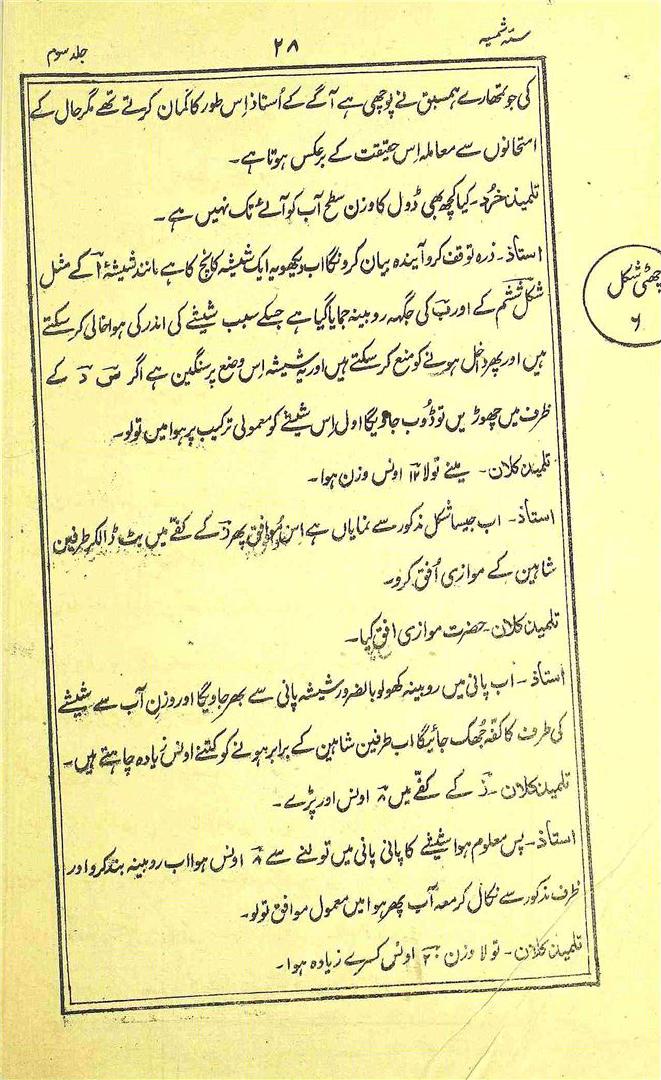 ستہ شمسیہ ۲۸ جلد سوم
کی جو تمھارے ہمسبق نے پوچھی ہے آگے کے اُستاذ اِس طور کا گمان کرتے تھے مگر حال کے
امتحانوں سے معاملہ اِس حقیقت کے برعکس ہوتا ہے۔
تلمیذ خرُد۔ کیا کچھ بھی ڈول کا وزن سطح آب کو آلے تک نہیں ہے۔
استاذ۔ ذرہ توقف کرو آیندہ بیان کرونگا اب دیکھو یہ ایک شیشہ کانچ کا ہے مانند شیشۂ آ کے مثل
شکل ششم کے اور ب کی جگہہ روبینہ جمایا گیا ہے جسکے سبب شیشے کی اندر کی ہوا خالی کر سکتے
ہیں اور پھر داخل ہونے کو منع کر سکتے ہیں اور یہ شیشہ اِس وضع پر سنگین ہے اگر ص د کے
ظرف میں چھوڑیں تو ڈوب جاویگا اول اِس شیشے کو معمولی ترکیب پر ہوا میں تولو۔
تلمیذ کلان۔ مینے تولا ۱۲ اونس وزن ہوا۔
استاذ۔ اب جیسا شکل مذکور سے نمایاں ہے اِس موافق پھر ذ کے کفے میں بٹ ڈالکر طرفین
شاہین کے موازی اُفق کرو۔
تلمیذ کلان۔ حضرت موازی افق کیا۔
استاذ۔ اب پانی میں روبینہ کھولو بالضرور شیشہ پانی سے بھر جاویگا اور وزنِ آب سے شیشے
کی طرف کا کفّہ جُھک جائیگا اب طرفین شاہین کے برابر ہونے کو کتنے اونس زیادہ چاہتے ہیں۔
تلمیذ کلان۔ ذ کے کفّے میں ۸ اونس اور پڑے۔
استاذ۔ پس معلوم ہوا شیشے کا پانی پانی میں تولنے سے ۸ اونس ہوا اب روبینہ بند کرو اور
ظرف مذکور سے نکال کر معہ آب پھر ہوا میں معمول موافق تولو۔
تلمیذ کلان۔ تولا وزن ۲۰ اونس کسرے زیادہ ہوا۔
چھٹی شکل
۶